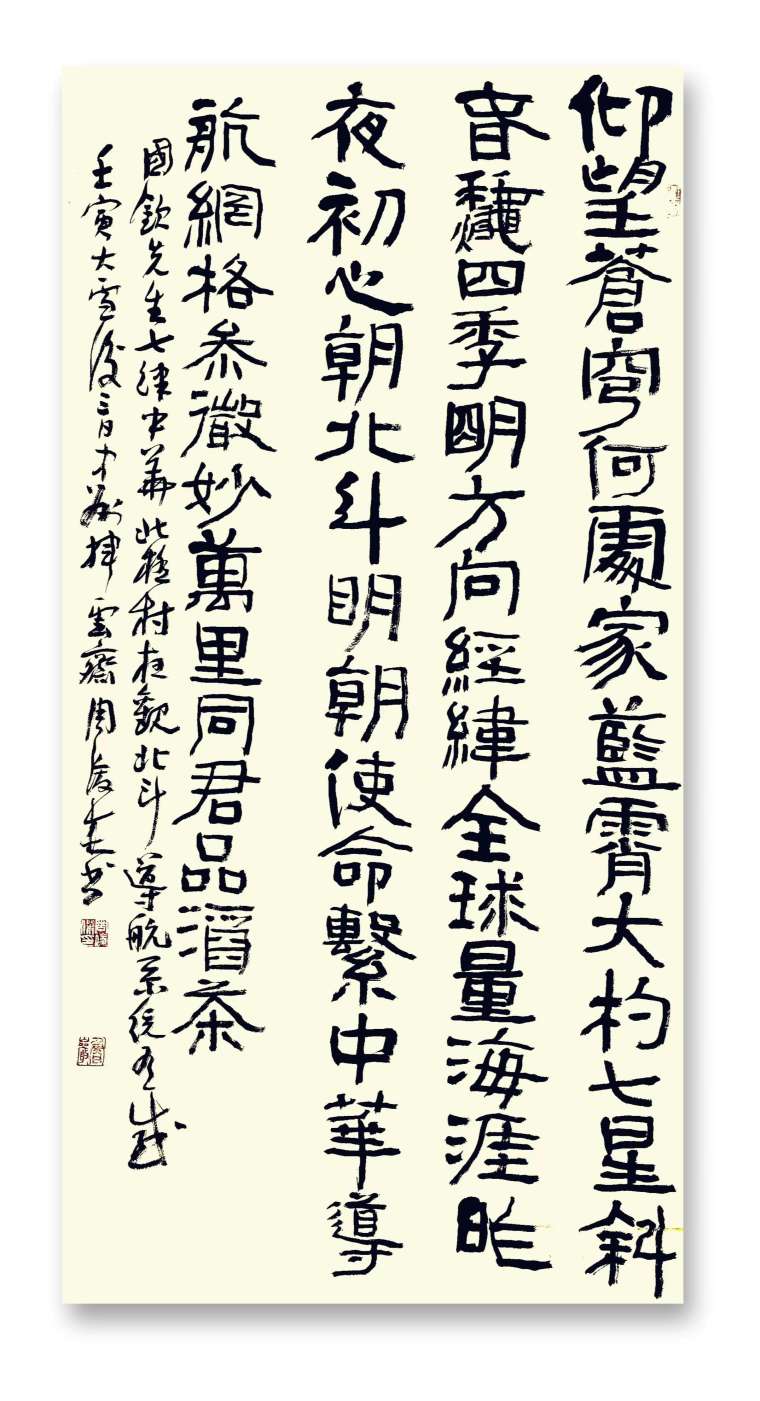 仰望蒼穹何處家藍霄大杓七星斜
春龝四季明方向經緯全球量海涯昨
夜初心朝北斗明朝使命繫中華導
航網格參微妙萬里同君品酒茶
國欽先生七律中華北極村柱觀北斗導航系統有感
壬寅大雪後三日於揮雲齋周彥書